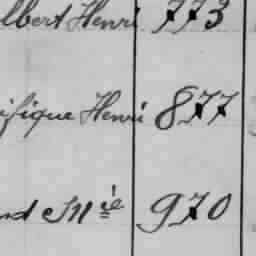 lbert Henri 773
ifique Henri 877
nd Mie 970